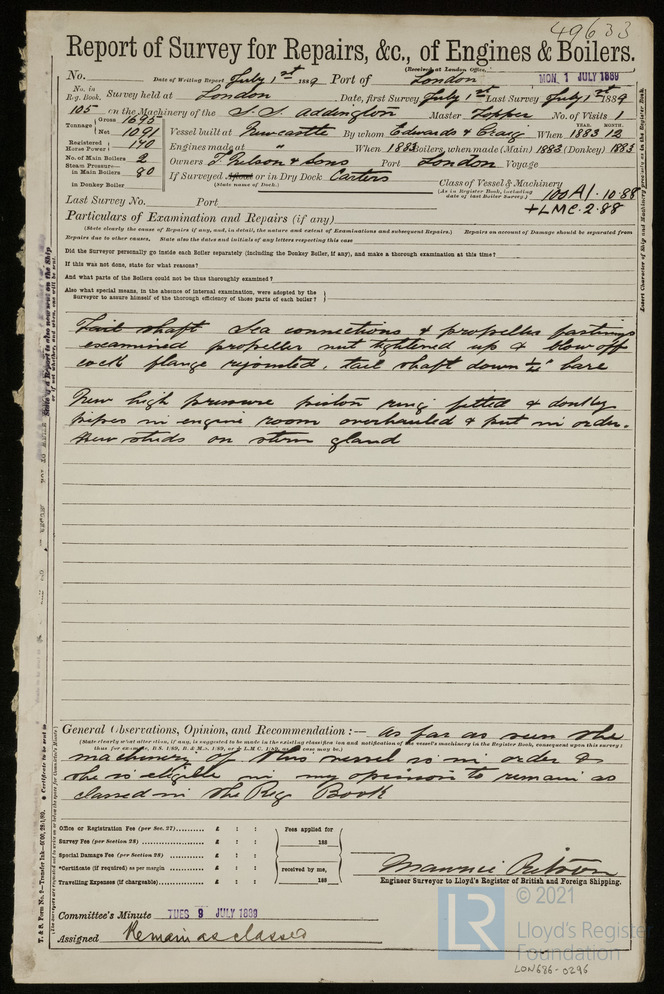 49633
Report of Survey for Repairs, &c., of Engines & Boilers.
(Received at London Office,
No. Date of Writing Report July 1st 1889 Port of London MON. 1 JULY 1889
No. in Reg. Book. Survey held at London Date, first Survey July 1st Last Survey July 1st 1889
105 on the Machinery of the S.S. Addington Master No. of Visits 1
Tonnage Gross 1695
Net 1091 Vessel built at Newcastle By whom Edwards & When 1883 12 YEAR. MONTH.
Registered Horse Power 170 Engines made at " When 1883 Boilers, when made (Main) 1883 (Donkey) 1883
No. of Main Boilers 2
Owners & Sons Port London Voyage
Steam Pressure in Main Boilers 80 If Surveyed Afloat or in Dry Dock Carters
(State name of Dock.)
in Donkey Boiler
Class of Vessel & Machinery 100A1. 10.88
(As in Register Book, including date of last Boiler Survey.)
+LMC. 2.88
Last Survey No. Port
Particulars of Examination and Repairs (if any)
(State clearly the cause of Repairs if any, and, in detail, the nature and extent of Examinations and subsequent Repairs.) Repairs on account of Damage should be separated from
Repairs due to other causes. State also the dates and initials of any letters respecting this case
Did the Surveyor personally go inside each Boiler separately (including the Donkey Boiler, if any), and make a thorough examination at this time?
If this was not done, state for what reasons?
And what parts of the Boilers could not be thus thoroughly examined?
Also what special means, in the absence of internal examination, were adopted by the
Surveyor to assure himself of the thorough efficiency of those parts of each boiler?
Tail shaft Sea connections & propeller fastenings
examined propeller nut tightened up & blow off
cock flange rejointed, tail shaft down 1/4" bare
New high pressure piston ring fitted & donkey
pipes in engine room overhauled & put in order.
New studs on stern gland
General Observations, Opinion, and Recommendation :— as far as seen the
(State clearly what alteration, if any, is suggested to be made in the existing classification and notification of the vessel's machinery in the Register Book, consequent upon this survey:
machinery of this vessel is in order &
she is eligible in my opinion to remain as
classed in the Reg Book
Office or Registration Fee (per Sec. 27) £ : : Fees applied for
Survey Fee (per Section 28) £ : : 188
Special Damage Fee (per Section 28) £ : :
*Certificate (if required) as per margin £ : : received by me,
Travelling Expenses (if chargeable) £ : : 188
Engineer Surveyor to Lloyd's Register of British and Foreign Shipping.
Committee's Minute TUES 9 JULY 1889
Assigned Remain as classed
© 2021
LR Lloyd's Register
Foundation
LON686-0296